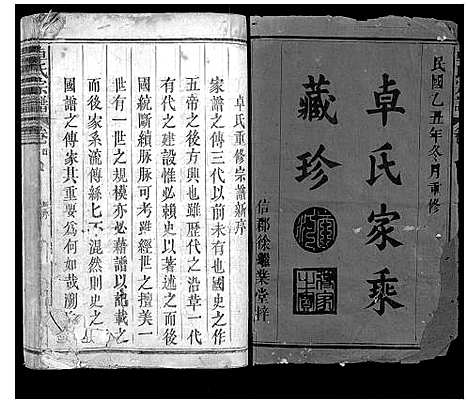 民國乙丑年冬月重修
卓氏家乘
藏珍
信郡徐繼業堂梓
卓氏重修宗譜新序
家譜之傳三代以前未有也國史之作
五帝之後方興也雖歷代之沿革一代
有代之建設惟必賴史以著述之而後
國統斷續脉脉可考雖經世之擅美一
世有一世之規模亦必藉譜以記載之
而後家系流傳絲七不混然則史之
國譜之傳家其正要為何如哉瀏
卓氏宗譜